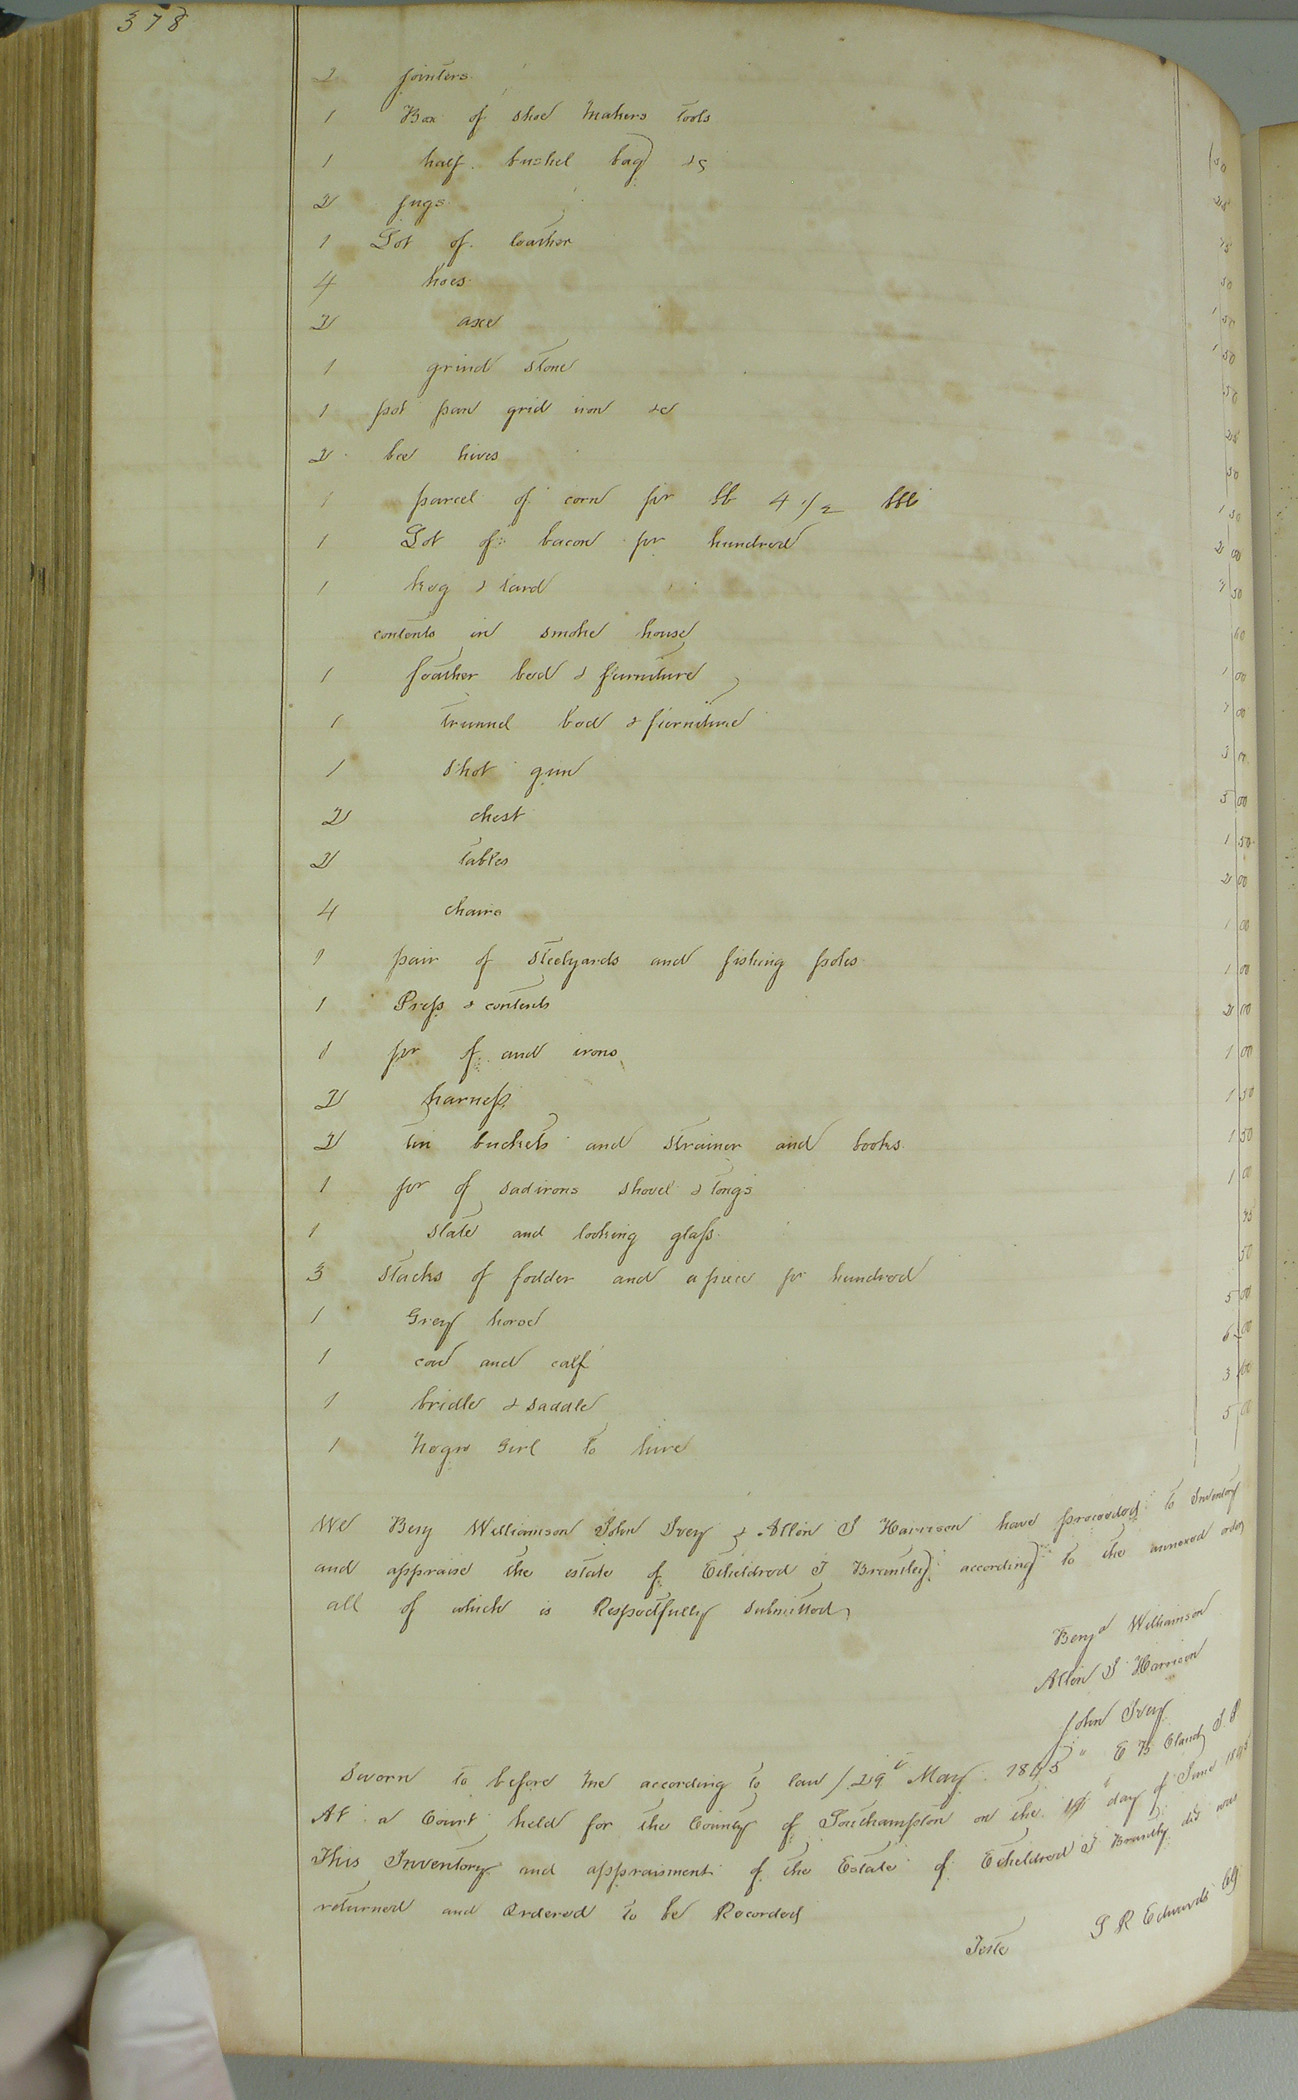 378
2 jointers
1 Box of shoe Makers tools
1 half bushel bag &c
2 jugs
1 Lot of leather
4 hoes
2 axe
1 grind stone
1 pot pan grid iron &c
2 bee hives
1 parcel of corn pr bb 4 1/2 bbl
1 Lot of bacon pr hundred
1 keg & lard
contents in smoke house
1 feather bed & furniture
1 trunnel bed & furniture
1 shot gun
2 chest 5 00
2 tables 1 50
4 chairs 2 00
1 pair of steelyards and fishing poles 1 00
1 Press & contents 2 00
1 pr of and irons 1 00
2 harness 1 50
2 tin buckets and strainer and books 1 50
1 pr of sadirons shovel & tongs 1 00
1 slate and looking glass
3 stacks of fodder and a piece pr hundred 50
1 Grey horse 5 00
1 cow and calf
1 bridle & saddle 3 00
1 Negro Girl to hire 5 00
We Benj Williamson John Ivey & Allen J Harrison have proceeded to Inventory
and appraise the estate of Etheldred J Brantley according to the annexed order
all of which is Respectfully submitted
Benja Williamson
Allen J Harrison
John Ivey
Sworn to before me according to law 29th May 1845 E B Claud J. P
At a Court held for the County of Southampton on the day of June 1845
This Inventory and appraisment of the Estate of Etheldred J Brantley was
returned and Ordered to be Recorded
Teste L R Edwards Clk